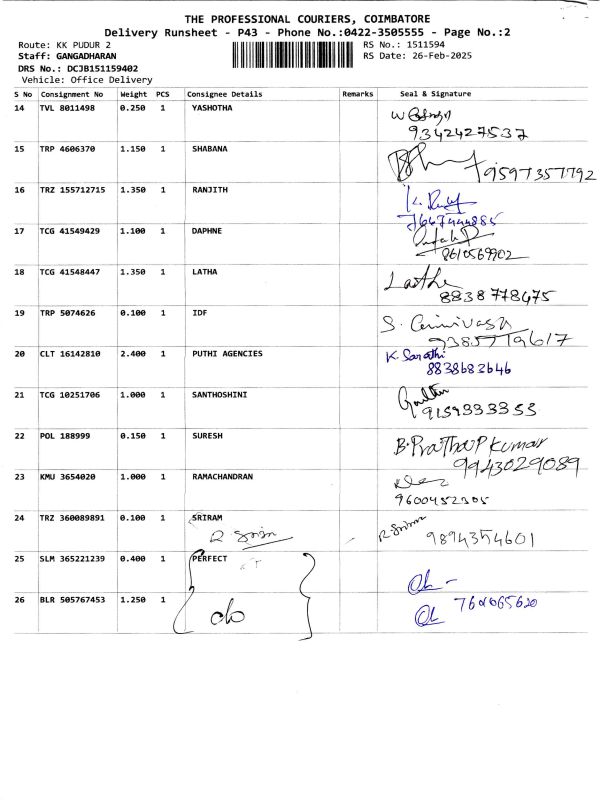 THE PROFESSIONAL COURIERS, COIMBATORE
Delivery Runsheet - P43 - Phone No.:0422-3505555 - Page No.:2
Route: KK PUDUR 2 RS No.: 1511594
Staff: GANGADHARAN RS Date: 26-Feb-2025
DRS No.: DCJB151159402
Vehicle: Office Delivery
S No Consignment No Weight PCS Consignee Details Remarks Seal & Signature
14 TVL 8011498 0.250 1 YASHOTHA
9342427537
15 TRP 4606370 1.150 1 SHABANA
9597357792
16 TRZ 155712715 1.350 1 RANJITH
7667444885
17 TCG 41549429 1.100 1 DAPHNE
8610569902
18 TCG 41548447 1.350 1 LATHA
8838778475
19 TRP 5074626 0.100 1 IDF
S.
20 CLT 16142810 2.400 1 PUTHI AGENCIES K. Sarathi
8838682646
21 TCG 10251706 1.000 1 SANTHOSHINI
9159333353
22 POL 188999 0.150 1 SURESH B. PraThaP Kumar
9943029089
23 KMU 3654020 1.000 1 RAMACHANDRAN
9600452305
24 TRZ 360089891 0.100 1 SRIRAM
9894354601
25 SLM 365221239 0.400 1 PERFECT
26 BLR 505767453 1.250 1